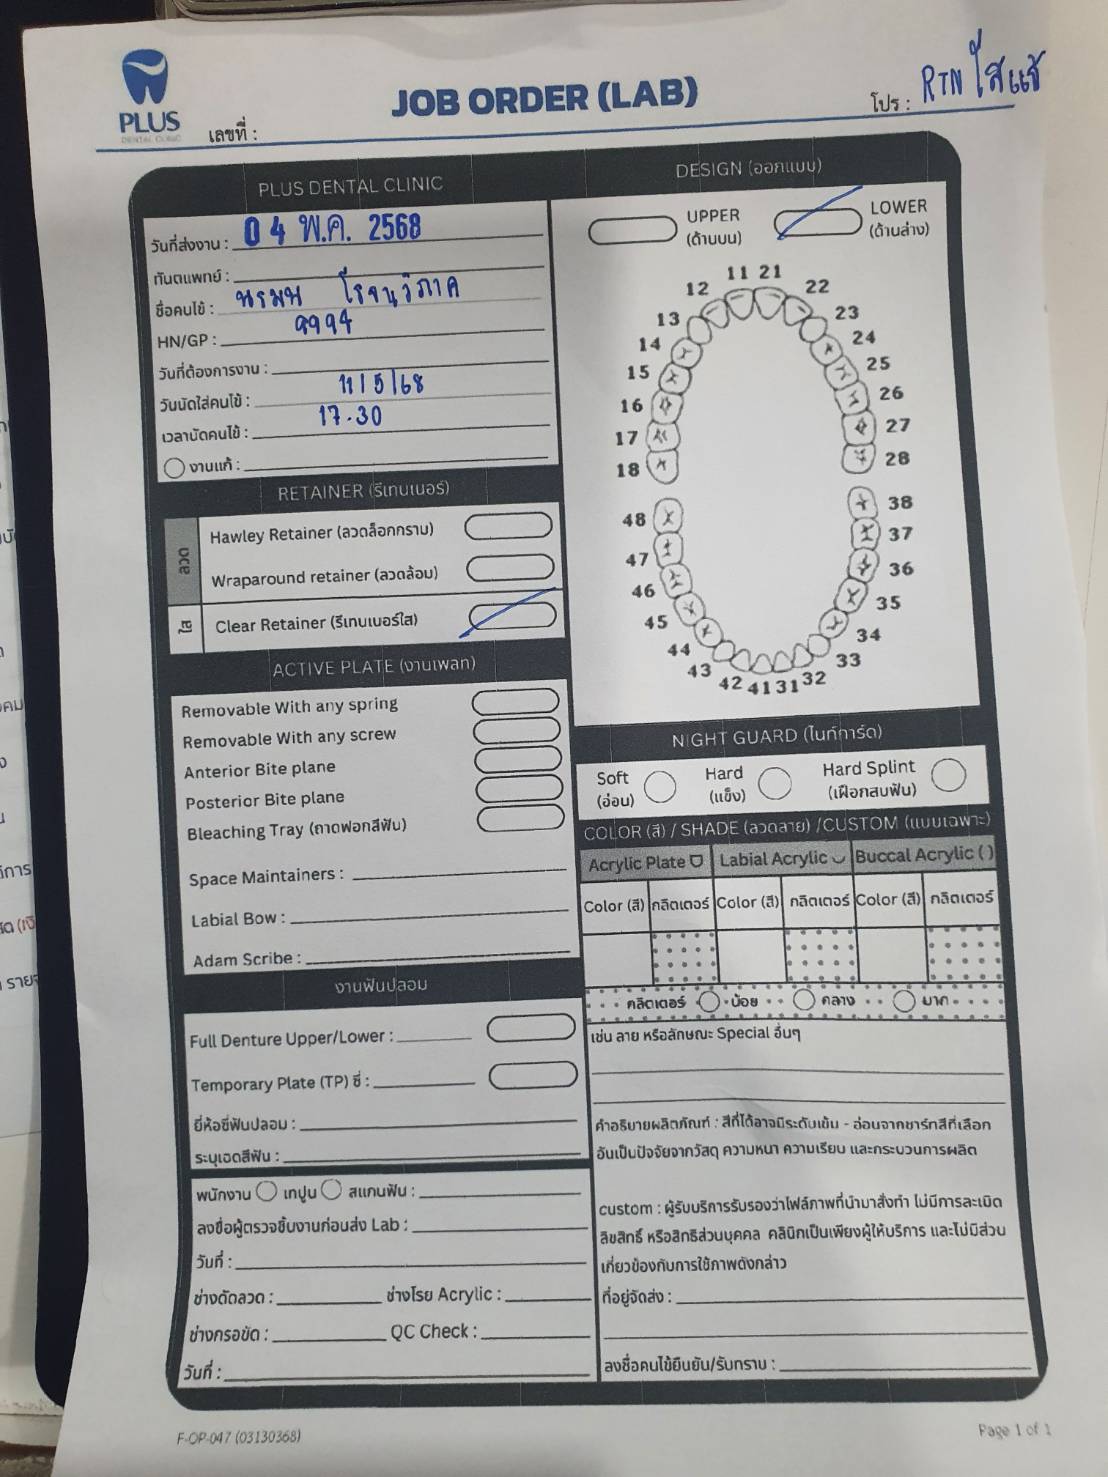 PLUS
DENTAL CLINIC
เลขที่ :
JOB ORDER (LAB)
โปร : RTN ใสแช้
PLUS DENTAL CLINIC
วันที่ส่งงาน : 04 พ.ค. 2568
ทันตแพทย์ :
ชื่อคนไข้ : นรมน โรจนวิภาค
HN/GP : 9994
วันที่ต้องการงาน :
วันนัดใส่คนไข้ : 11/5/68
เวลานัดคนไข้ : 17.30
งานแก้ :
RETAINER (รีเทนเนอร์)
ลวด
Hawley Retainer (ลวดล็อกกราม)
Wraparound retainer (ลวดล้อม)
ใส
Clear Retainer (รีเทนเนอร์ใส)
ACTIVE PLATE (งานเพลท)
Removable With any spring
Removable With any screw
Anterior Bite plane
Posterior Bite plane
Bleaching Tray (ถาดฟอกสีฟัน)
Space Maintainers :
Labial Bow :
Adam Scribe :
งานฟันปลอม
Full Denture Upper/Lower :
Temporary Plate (TP) ซี่ :
ยี่ห้อซี่ฟันปลอม :
ระบุเฉดสีฟัน :
พนักงาน เทปูน สแกนฟัน :
ลงชื่อผู้ตรวจชิ้นงานก่อนส่ง Lab :
วันที่ :
ช่างดัดลวด : ช่างโรย Acrylic :
ช่างกรอขัด : QC Check :
วันที่ :
DESIGN (ออกแบบ)
UPPER
(ด้านบน)
LOWER
(ด้านล่าง)
11 21
12 22
13 23
14 24
15 25
16 26
17 27
18 28
48 38
47 37
46 36
45 35
44 34
43 33
42 41 31 32
NIGHT GUARD (ไนท์การ์ด)
Soft
(อ่อน)
Hard
(แข็ง)
Hard Splint
(เฝือกสบฟัน)
COLOR (สี) / SHADE (ลวดลาย) /CUSTOM (แบบเฉพาะ)
Acrylic Plate Labial Acrylic Buccal Acrylic ( )
Color (สี) กลิตเตอร์ Color (สี) กลิตเตอร์ Color (สี) กลิตเตอร์
กลิตเตอร์ น้อย กลาง มาก
เช่น ลาย หรือลักษณะ Special อื่นๆ
คำอธิบายผลิตภัณฑ์ : สีที่ได้อาจมีระดับเข้ม - อ่อนจากชาร์ทสีที่เลือก
อันเป็นปัจจัยจากวัสดุ ความหนา ความเรียบ และกระบวนการผลิต
custom : ผู้รับบริการรับรองว่าไฟล์ภาพที่นำมาสั่งทำ ไม่มีการละเมิด
ลิขสิทธิ์ หรือสิทธิส่วนบุคคล คลินิกเป็นเพียงผู้ให้บริการ และไม่มีส่วน
เกี่ยวข้องกับการใช้ภาพดังกล่าว
ที่อยู่จัดส่ง :
ลงชื่อคนไข้ยืนยัน/รับทราบ :
F-OP-047 (03130368)
Page 1 of 1